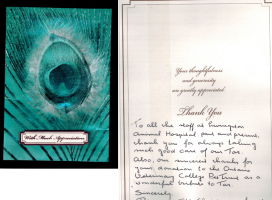 With Much Appreciation
Your thoughtfulness
and generosity
are greatly appreciated.
Thank You
To all the staff at
Animal Hospital past and present,
thank you for always taking
such good care of our Tas.
Also, our sincerest thanks for
your donation to the Ontario
Veterinary College Pet Trust as a
wonderful tribute to Tas.
Sincerely